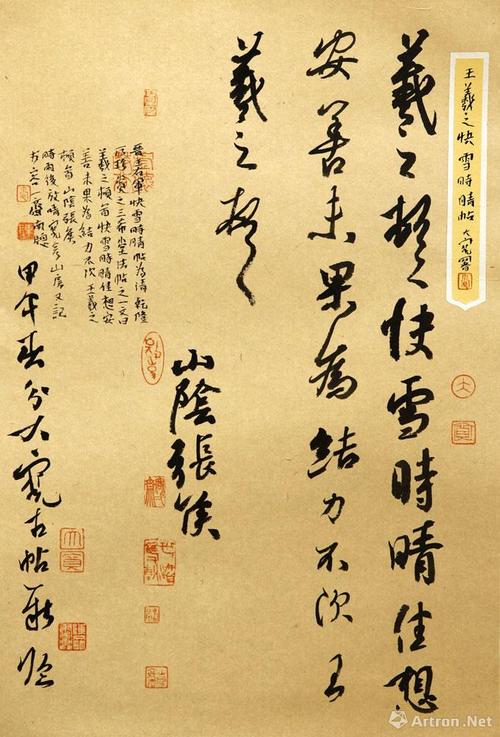 王羲之快雪時晴帖 大寬署
羲之頓首快雪時晴佳想
安善未果為結力不次王
羲之頓首
山陰張侯
晉王右軍快雪時晴帖為清乾隆
所珍愛之三希堂法帖之一文曰
羲之頓首快雪時晴佳想安
善未果為結力不次王羲之
頓首山陰張侯
時雨後放晴寬於山房又記
一齋南
甲午春分大寬古帖新臨
大寬
Artron.Net